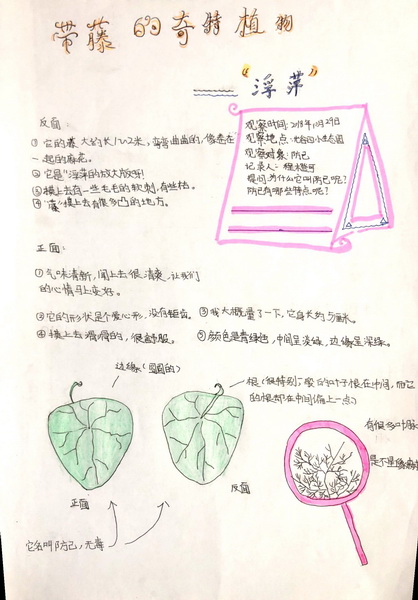 带藤的奇特植物
——“浮萍”
反面:
①它的藤大约长1~2米,弯弯曲曲的,像卷在
一起的麻花。
②它是“浮萍的放大版呀!
③摸上去有一些毛毛的软刺,有些粘。
④“藤”摸上去有很多凸的地方。
观察时间:2018年10月29日
观察地点:
观察对象:防己
记录人:
提问:为什么它叫防己呢?
防己有哪些特点呢?
正面:
①气味清新,闻上去很清爽,让我们
的心情马上变好。
②它的形状是个爱心形,没有锯齿。
③我大概量了一下,它身长约5厘米。
④摸上去滑滑的,很舒服。
⑤颜色是青绿色,中间呈淡绿,边缘呈深绿。
边缘(圆圆的)
根(很特别)
的叶子根在中间,而它
的根却在中间偏上一点)
有很多叶脉
是不是像
正面
反面
它名叫防己,无毒